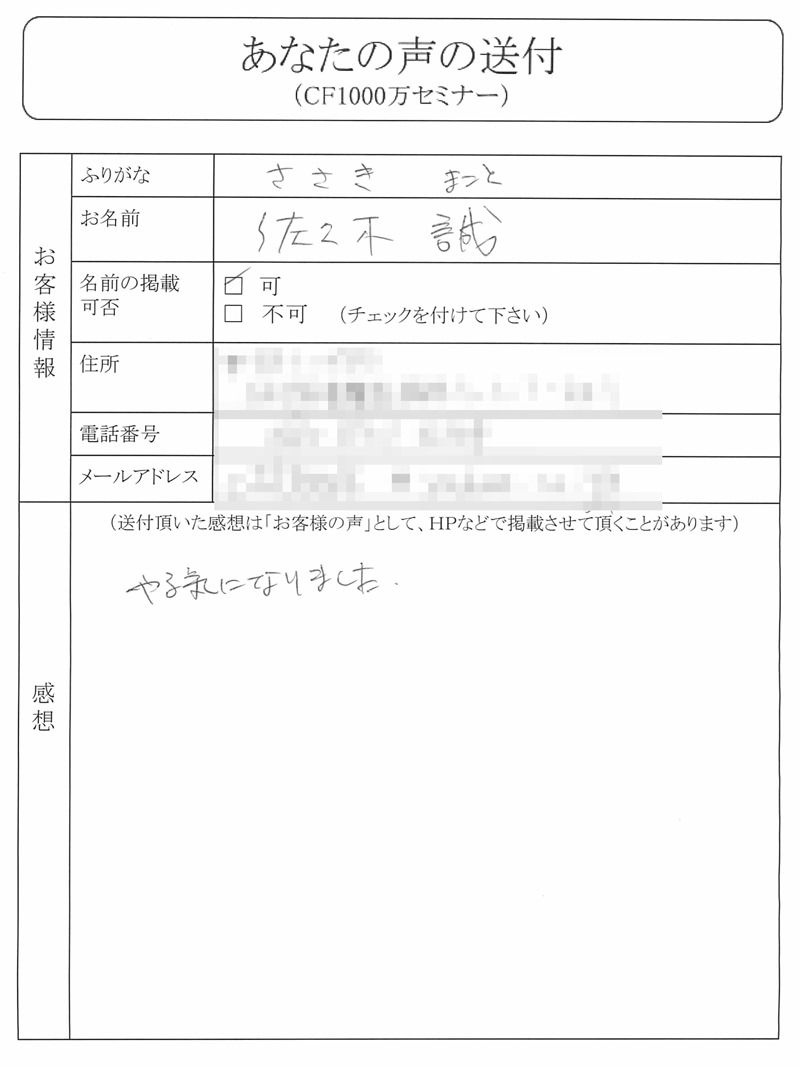 あなたの声の送付
（CF1000万セミナー）
お客様情報
ふりがな
ささき まこと
お名前
佐々木 誠
名前の掲載可否
☑ 可
☐ 不可 （チェックを付けて下さい）
住所
電話番号
メールアドレス
感想
（送付頂いた感想は「お客様の声」として、HPなどで掲載させて頂くことがあります）
やる気になりました.